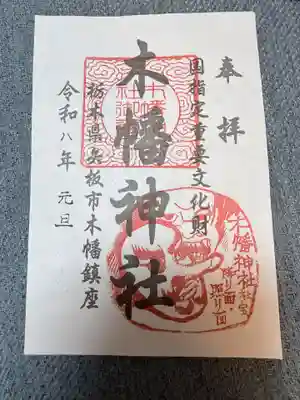 奉拝
国指定重要文化財
木幡神社
栃木県矢板市木幡鎮座
令和八年 元旦
木幡神社社宝
降り面・照り面